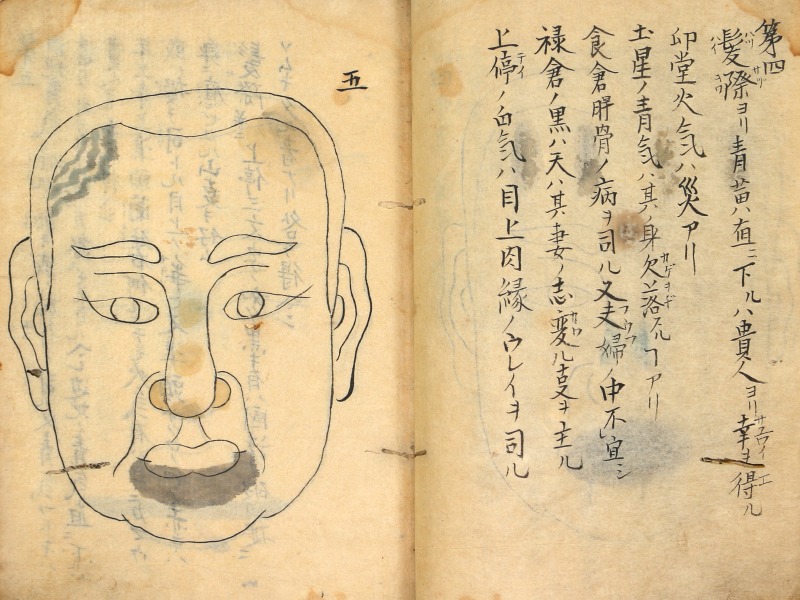 第四
髪際ヨリ青黄ハ直ニ下ルハ貴人ヨリ幸ヲ得ル
印堂火気ハ災アリ
土星ノ青気ハ其ノ身欠落スルヿアリ
食倉肝骨ノ病ヲ司ル又夫婦ノ中不宜シ
禄倉ノ黒ハ天ハ其妻ノ志変ル支ヲ主ル
上停ノ血気ハ目上肉縁ノウレイヲ司ル
五